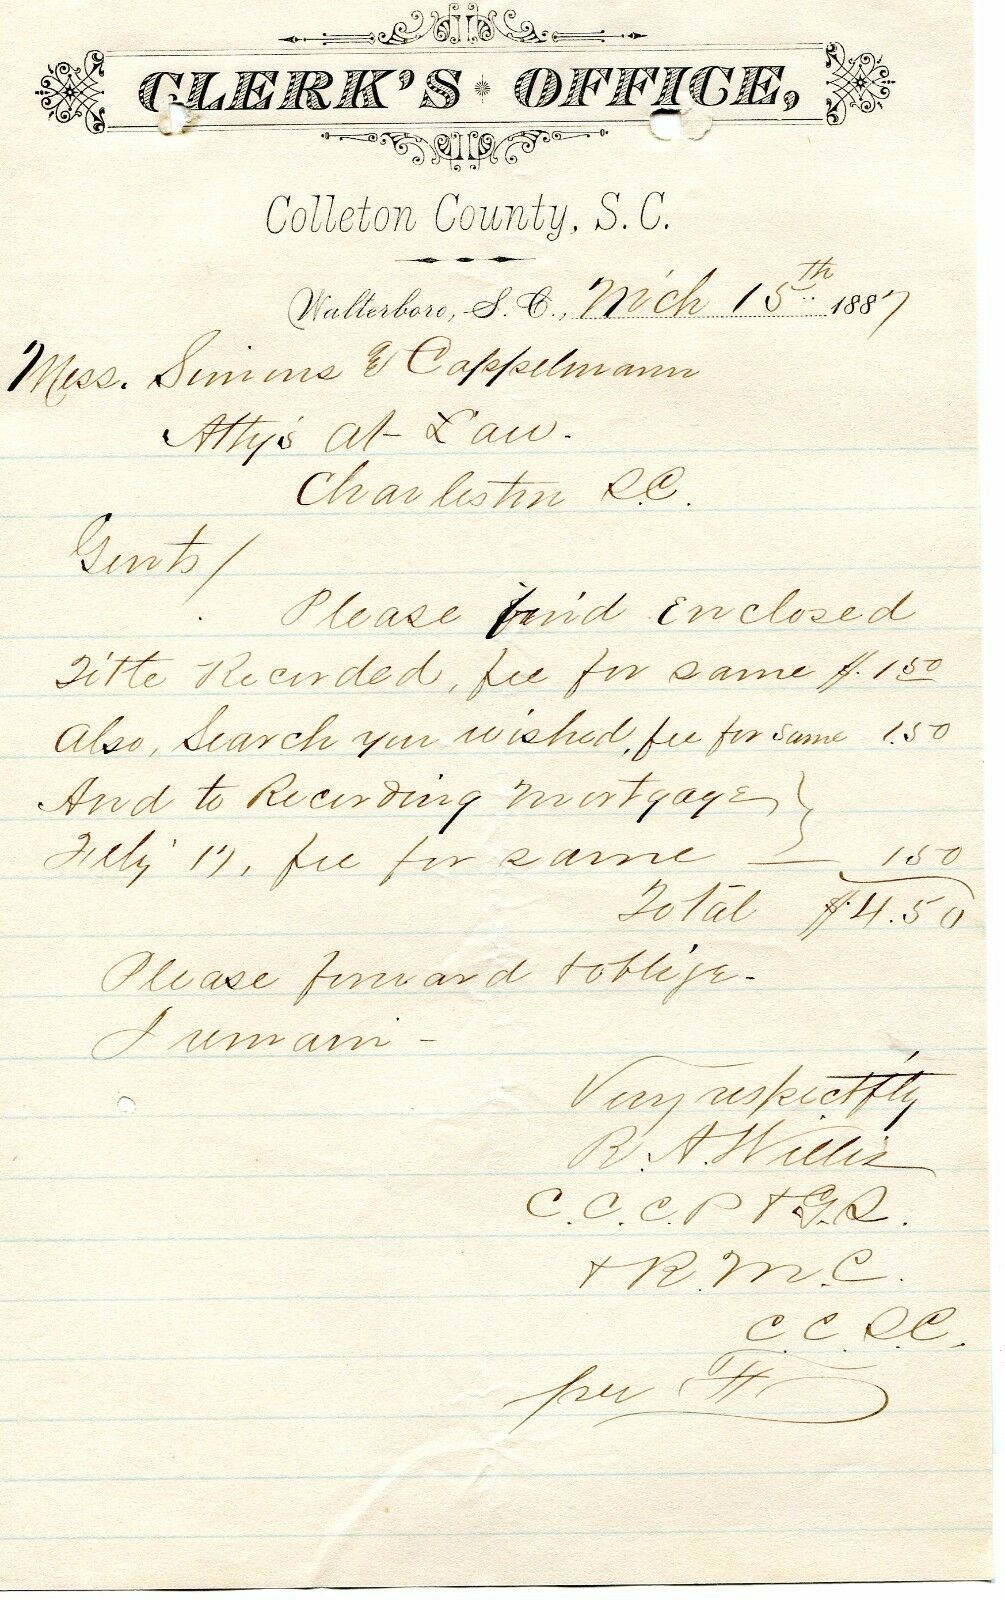 CLERK'S OFFICE,
Colleton County, S.C.
Walterboro, S. C., Mch 15th 1887
Mess. Simons & Cappelmann
Atty's at Law.
Charleston S.C.
Gents/
Please find enclosed
Title Recorded, fee for same $.1.50
Also, Search you wished, fee for same 1.50
And to Recording Mortgage }
Feby 17, fee for same — 1.50
Total $4.50
Please forward & oblige-
I remain -
Very respectfly
R. A. Willis
C.C.C.P & G.S.
& R.M.C.
C.C.S.C.
per